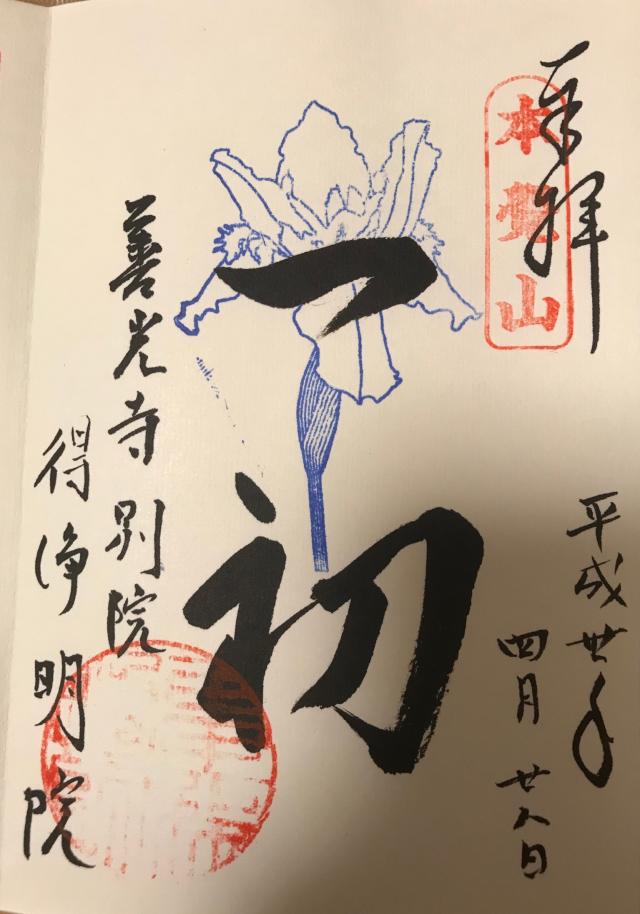 奉拝
本覺山
平成丗年
四月廿八日
一初
善光寺別院
得浄明院